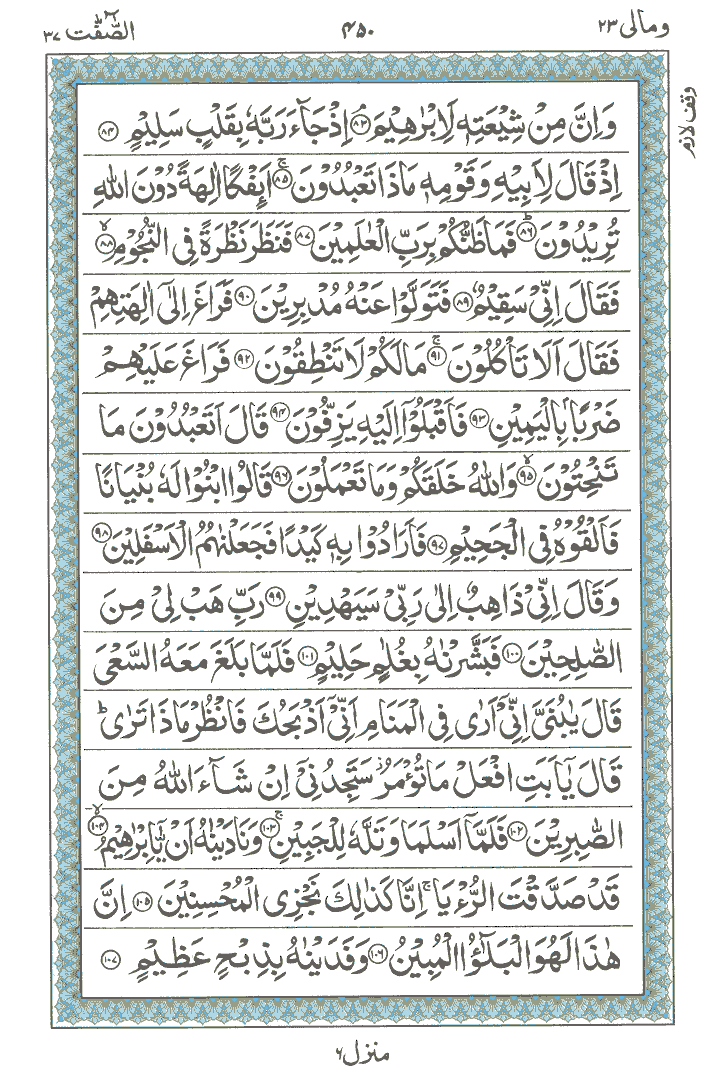 وَمَالِیَ ٢٣
٤٥٠
الصّٰٓفّٰت ٣٧
وقف لازم
وَاِنَّ مِنْ شِيْعَتِهٖ لَاِبْرٰهِيْمَ ﴿٨٣﴾ اِذْ جَآءَ رَبَّهٗ بِقَلْبٍ سَلِيْمٍ ﴿٨٤﴾
اِذْ قَالَ لِاَبِيْهِ وَقَوْمِهٖ مَاذَا تَعْبُدُوْنَ ﴿٨٥﴾ۚ اَئِفْكًا اٰلِهَةً دُوْنَ اللّٰهِ
تُرِيْدُوْنَ ﴿٨٦﴾ؕ فَمَا ظَنُّكُمْ بِرَبِّ الْعٰلَمِيْنَ ﴿٨٧﴾ فَنَظَرَ نَظْرَةً فِى النُّجُوْمِ ﴿٨٨﴾ۙ
فَقَالَ اِنِّىْ سَقِيْمٌ ﴿٨٩﴾ فَتَوَلَّوْا عَنْهُ مُدْبِرِيْنَ ﴿٩٠﴾ فَرَاغَ اِلٰٓى اٰلِهَتِهِمْ
فَقَالَ اَلَا تَاْكُلُوْنَ ﴿٩١﴾ۚ مَا لَكُمْ لَا تَنْطِقُوْنَ ﴿٩٢﴾ فَرَاغَ عَلَيْهِمْ
ضَرْبًۢا بِالْيَمِيْنِ ﴿٩٣﴾ فَاَقْبَلُوْۤا اِلَيْهِ يَزِفُّوْنَ ﴿٩٤﴾ قَالَ اَتَعْبُدُوْنَ مَا
تَنْحِتُوْنَ ﴿٩٥﴾ۙ وَاللّٰهُ خَلَقَكُمْ وَمَا تَعْمَلُوْنَ ﴿٩٦﴾ قَالُوا ابْنُوْا لَهٗ بُنْيَانًا
فَاَلْقُوْهُ فِى الْجَحِيْمِ ﴿٩٧﴾ فَاَرَادُوْا بِهٖ كَيْدًا فَجَعَلْنٰهُمُ الْاَسْفَلِيْنَ ﴿٩٨﴾
وَقَالَ اِنِّىْ ذَاهِبٌ اِلٰى رَبِّىْ سَيَهْدِيْنِ ﴿٩٩﴾ رَبِّ هَبْ لِىْ مِنَ
الصّٰلِحِيْنَ ﴿١٠٠﴾ فَبَشَّرْنٰهُ بِغُلٰمٍ حَلِيْمٍ ﴿١٠١﴾ فَلَمَّا بَلَغَ مَعَهُ السَّعْىَ
قَالَ يٰبُنَىَّ اِنِّىْۤ اَرٰى فِى الْمَنَامِ اَنِّىْۤ اَذْبَحُكَ فَانْظُرْ مَاذَا تَرٰىؕ
قَالَ يٰۤاَبَتِ افْعَلْ مَا تُؤْمَرُ سَتَجِدُنِىْۤ اِنْ شَآءَ اللّٰهُ مِنَ
الصّٰبِرِيْنَ ﴿١٠٢﴾ فَلَمَّاۤ اَسْلَمَا وَتَلَّهٗ لِلْجَبِيْنِ ﴿١٠٣﴾ۚ وَنَادَيْنٰهُ اَنْ يّٰۤاِبْرٰهِيْمُ ﴿١٠٤﴾ۙ
قَدْ صَدَّقْتَ الرُّءْيَاۚ اِنَّا كَذٰلِكَ نَجْزِى الْمُحْسِنِيْنَ ﴿١٠٥﴾ اِنَّ
هٰذَا لَهُوَ الْبَلٰٓؤُا الْمُبِيْنُ ﴿١٠٦﴾ وَفَدَيْنٰهُ بِذِبْحٍ عَظِيْمٍ ﴿١٠٧﴾
منزل ٦